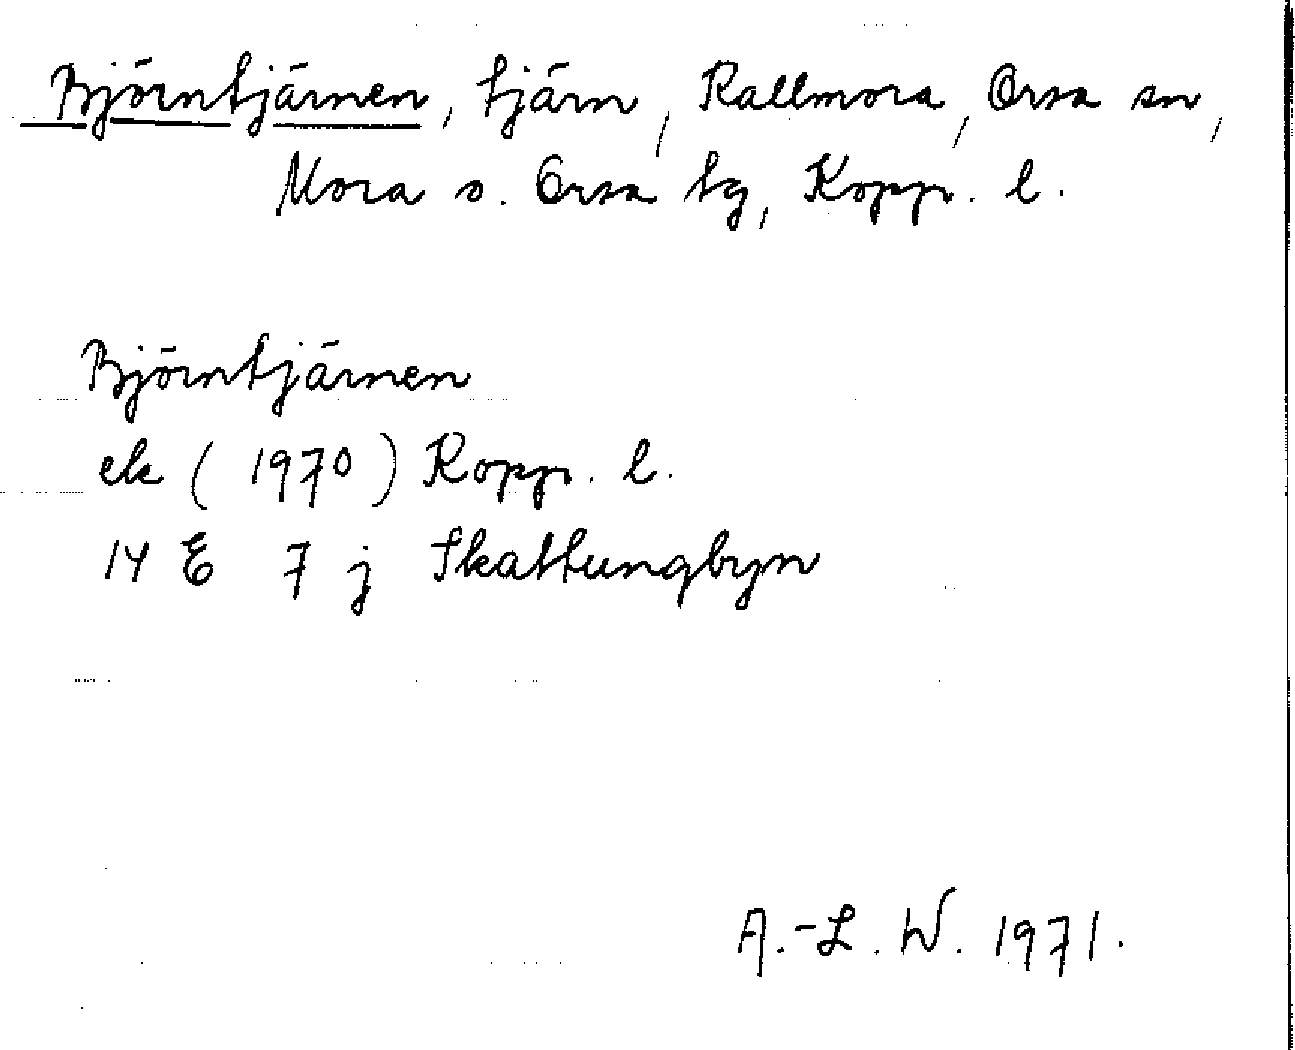 Björntjärnen, tjärn, Kallmora, Orsa sn,
Mora o. Orsa tg, Kopp. l.
Björntjärnen
ek (1970) Kopp. l.
14 E 7 j Skattungbyn
A.-L. W. 1971.